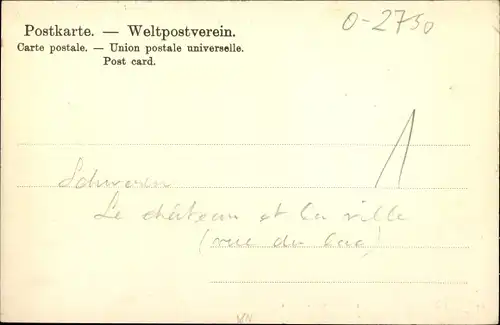 Postkarte. — Weltpostverein.
Carte postale. — Union postale universelle.
Post card.
0-2750
1
Schwerin
Le château et la ville
(vue du lac)